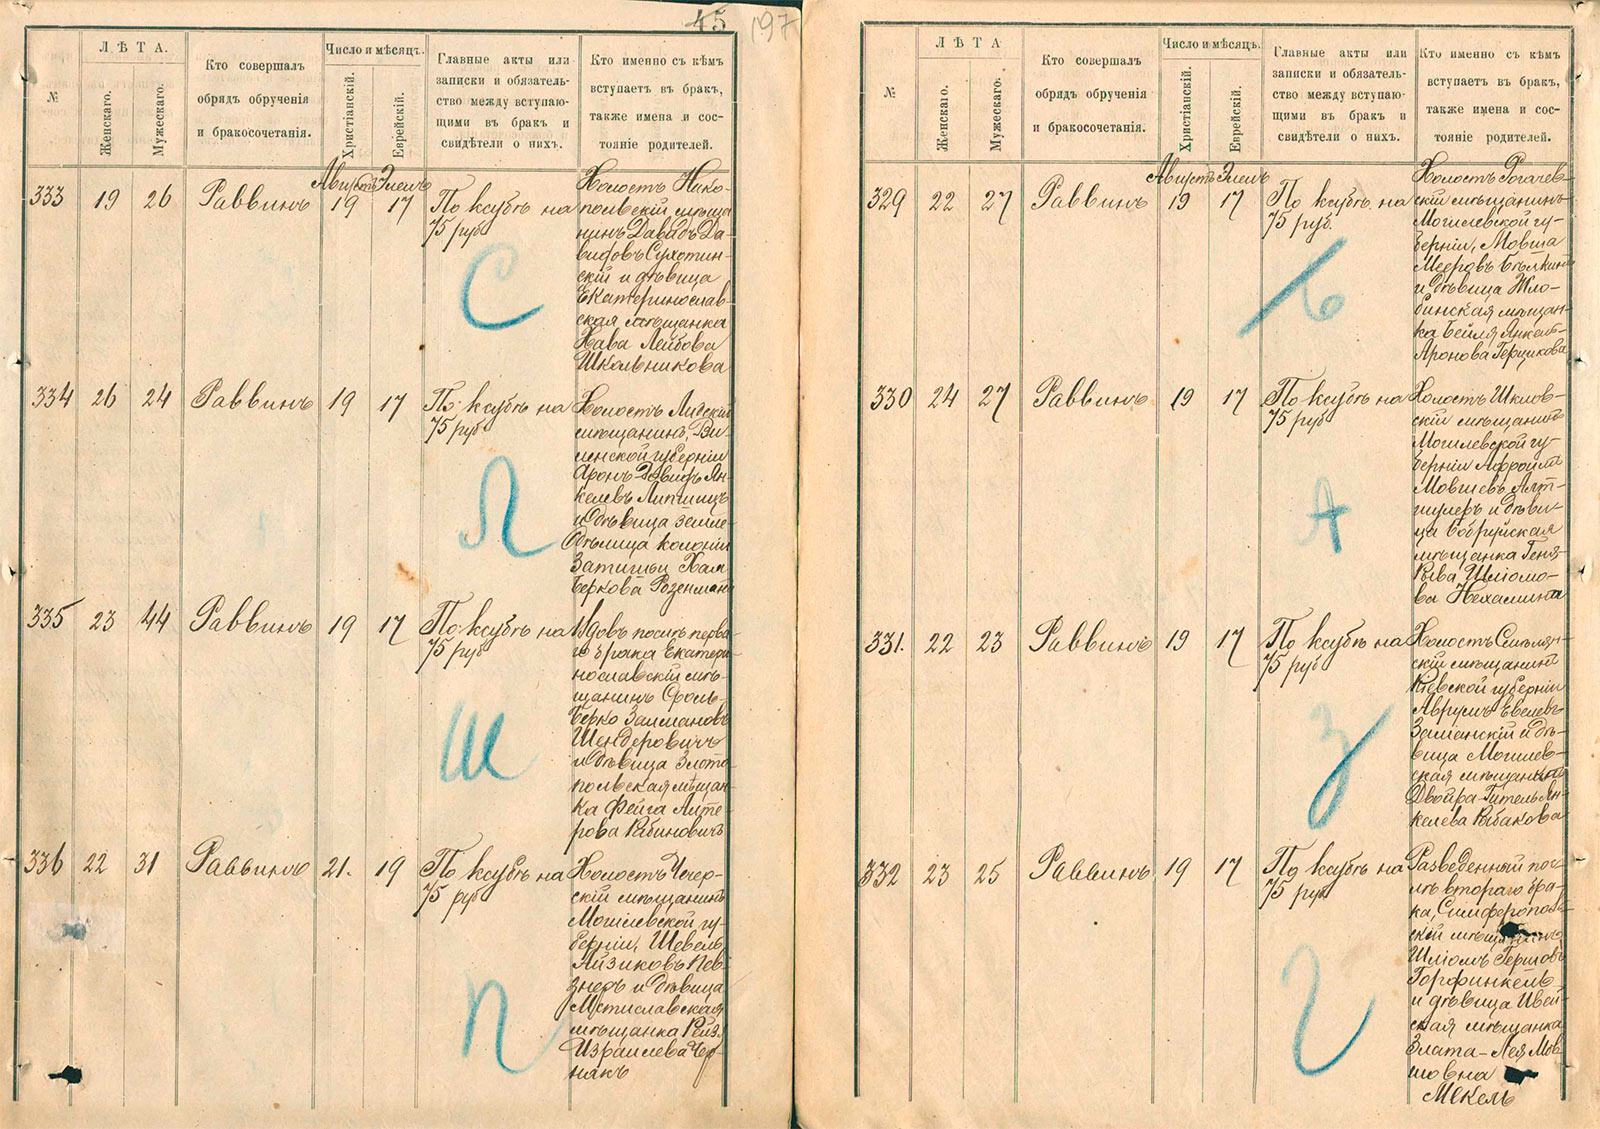 45
197
№
ЛѢТА.
Женскаго.
Мужескаго.
Кто совершалъ
обрядъ обрученія
и бракосочетанія.
Число и мѣсяцъ.
Христіанскій.
Еврейскій.
Главные акты или
записки и обязатель-
ство между вступаю-
щими въ бракъ и
свидѣтели о нихъ.
Кто именно съ кѣмъ
вступаетъ въ бракъ,
также имена и сос-
тояніе родителей.
333
19
26
Раввинъ
Августъ
19
Элелъ
17
По ксубѣ на
75 руб
С
Холостъ Нико-
польскій мѣща
нинъ Давидъ Да-
видовъ Сухотин-
скій и дѣвица
Екатеринослав-
ская мѣщанка
Хава Лейбова
Школьникова
334
26
24
Раввинъ
19
17
По ксубѣ на
75 руб
Л
Холостъ Лидскій
мѣщанинъ, Ви-
ленской губерніи
Аронъ-Давидъ Ян-
келевъ Липшицъ
и дѣвица земле-
дѣлица колоніи
Затишья Хая
Беркова Розенманъ
335
23
44
Раввинъ
19
17
По ксубѣ на
75 руб
Ш
Вдовъ послѣ перва-
го брака Екатери-
нославскій мѣ-
щанинъ Сроль-
Берко Залмановъ
Шендеровичъ
и дѣвица Злото
польская мѣщан-
ка Фейга Алте-
рова Рабиновичъ
336
22
31
Раввинъ
21.
19
По ксубѣ на
75 руб
П
Холостъ Чечер-
скій мѣщанинъ
Могилевской гу-
берніи, Шевель
Айзиковъ Пев-
знеръ и дѣвица
Мстиславская
мѣщанка Рейз
Израилева Чер-
някъ
№
ЛѢТА
Женскаго.
Мужескаго.
Кто совершалъ
обрядъ обрученія
и бракосочетанія.
Число и мѣсяцъ.
Христіанскій.
Еврейскій.
Главные акты или
записки и обязатель-
ство между вступаю-
щими въ бракъ и
свидѣтели о нихъ.
Кто именно съ кѣмъ
вступаетъ въ бракъ,
также имена и сос-
тояніе родителей.
329
22
27
Раввинъ
Августъ
19
Элелъ
17
По ксубѣ на
75 руб.
Б
Холостъ Рогачев-
скій мѣщанинъ
Могилевской гу-
берніи, Мовша
Мееровъ Бѣлкинъ
и дѣвица Жло-
бинская мѣщан-
ка Бейля Янкель-
Аронова Герцикова
330
24
27
Раввинъ
19
17
По ксубѣ на
75 руб
А
Холостъ Шклов-
скій мѣщанинъ
Могилевской гу-
берніи Афроимъ
Мовшевъ Алт-
шулеръ и дѣви-
ца Бобруйская
мѣщанка Геня-
Рива Шліомо-
ва Нехамкина
331.
22
23
Раввинъ
19
17
По ксубѣ на
75 руб
З
Холостъ Смѣлян-
скій мѣщанинъ
Кіевской губерніи
Аврумъ Евелевъ
Заманскій и дѣ-
вица Могилев-
ская мѣщанка
Двойра-Гитель Ян-
келева Рыбакова
332
23
25
Раввинъ
19
17
По ксубѣ на
75 руб
Г
Разведенный пос-
лѣ втораго бра-
ка, Симферополь-
скій мѣщанинъ
Шліомъ Гершовъ
Горфинкель
и дѣвица Ивей-
ская мѣщанка
Злата-Лея Мов-
шовна
Мекель